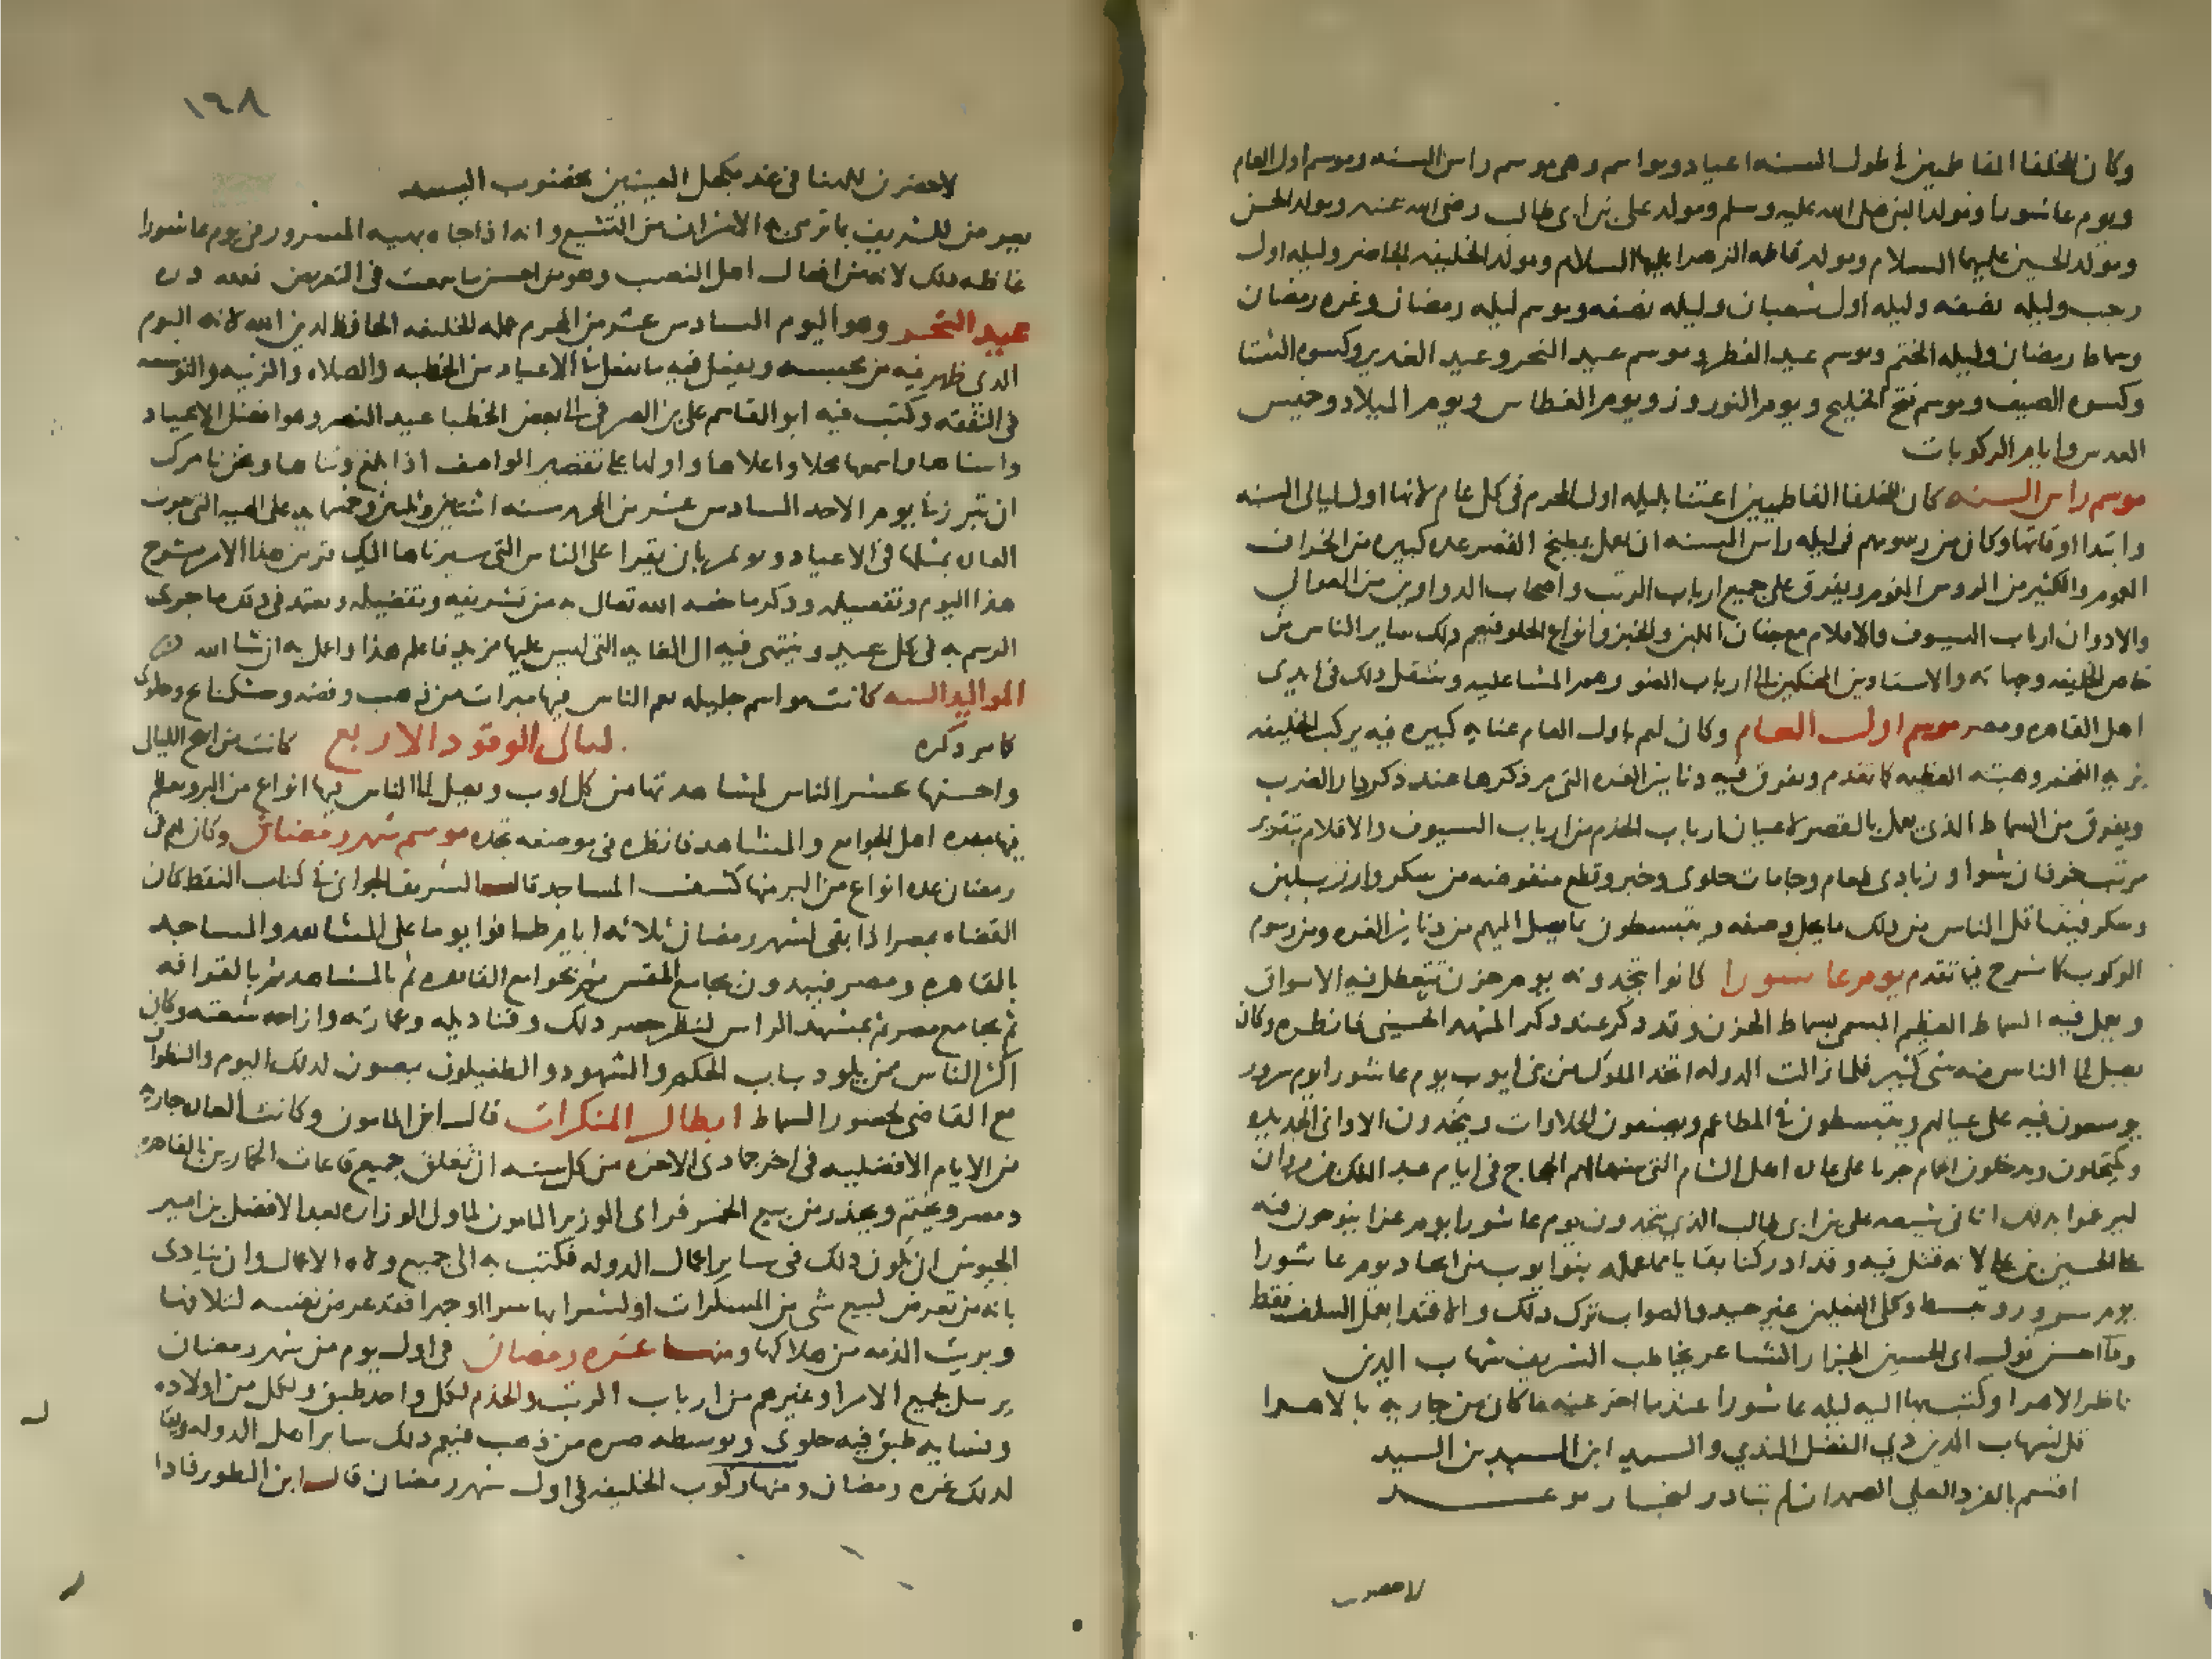 وكان للخلفا الفاطميين في طول السنه اعياد ومواسم وهي موسم راس السنه وموسم اول العام
ويوم عاشورا ومولد النبي صلى الله عليه وسلم ومولد علي بن ابى طالب رضي الله عنه ومولد الحسن
ومولد الحسين عليهما السلام ومولد فاطمه الزهرا عليها السلام ومولد الخليفه الحاضر وليله اول
رجب وليله نصفه وليله اول شعبان وليله نصفه وموسم ليله رمضان وغره رمضان
وسماط رمضان وليله الختم وموسم عيد الفطر وموسم عيد النحر وعيد الغدير وكسوه الشتا
وكسوه الصيف وموسم فتح الخليج ويوم النوروز ويوم الغطاس ويوم الميلاد وخميس
العدس وايام الركوبات
موسم راس السنه كان للخلفا الفاطميين اعتنا بليله اول المحرم في كل عام لانها اول ليالى السنه
وابتدا اوقاتها وكان من رسومهم في ليله راس السنه ان يعمل بمطبخ القصر عده كبيره من الخراف
المقموم والكثير من الروس المقموم ويفرق على جميع ارباب الرتب واصحاب الدواوين من العوالي
والادوان ارباب السيوف والاقلام مع جفان اللبن والخبز وانواع الحلو فيعم ذلك ساير الناس من
خاص الخليفه وجهاته والاستادين المحنكين الى ارباب الضو وهم المشاعليه وينتقل ذلك في ايدى
اهل القاهره ومصر موسم اول العام وكان لهم باول العام عنايه كبيره فيه يركب الخليفه
بزيه المفخم وهيئته العظيمه كما تقدم ويفرق فيه دنانير الغره التي مر ذكرها عند ذكر دار الضرب
ويفرق من السماط الذي يعمل بالقصر لاعيان ارباب الخدم من ارباب السيوف والاقلام بتقرير
مرتب خرفان شوا وزبادي طعام وجامات حلوى وخبز وقطع منفوخه من سكر وارز بلبن
وسكر فيتناقل الناس من ذلك ما يجل وصفه ويتبسطون بما يصل اليهم من دنانير الغره ومن رسوم
الركوب كما شرح فيما تقدم يوم عاشورا كانوا يتخذونه يوم حزن تتعطل فيه الاسواق
ويعمل فيه السماط العظيم المسمى سماط الحزن وقد ذكر عند ذكر المشهد الحسيني فانظره وكان
يصل الى الناس منه شي كثير فلما زالت الدوله اتخذ الملوك من بنى ايوب يوم عاشورا يوم سرور
يوسعون فيه على عيالهم ويتبسطون في المطاعم ويصنعون الحلاوات ويتخذون الاواني الجديده
ويكتحلون ويدخلون الحمام جريا على عاده اهل الشام التي سنها لهم الحجاج في ايام عبد الملك بن مروان
ليرغموا بذلك اناف شيعه على بن ابى طالب الذين يتخذون يوم عاشورا يوم عزا ينوحون فيه
على الحسين بن على لانه قتل فيه وقد ادركنا بقايا مما عمله بنوا ايوب من اتخاد يوم عاشورا
يوم سرور وتبسط وكلى الفعلين غير جيد والصواب ترك ذلك والاقتدا بفعل السلف فقط
وما احسن قول ابى الحسين الجزار الشاعر يخاطب الشريف شهاب الدين
ناظر الاهرا وكتب بها اليه ليله عاشورا عندما اخر عنه ما كان من جاريه بالاهرا
قل لشهاب الدين ذي الفضل الندي والسيد ابن السيد بن السيد
اقسم بالفرد العلي الصمد ان لم يبادر لنجاز موعد
لاحضرن
١٢٨
لاحضرن للهنا فى غد مكحل العينين مخضوب اليد
يعرض للشريف بما ترمى به الاشراف من التشيع وانه اذا جاه بهيه المسرور في يوم عاشورا
غاظه ذلك لانه من افعال اهل النصب وهو من احسن ما سمعت في التعريض فلله دره
عيد النصر وهو اليوم السادس عشر من المحرم عمله الخليفه الحافظ لدين الله لانه اليوم
الذى ظهر فيه من محبسه ويفعل فيه ما يفعل في الاعياد من الخطبه والصلاه والزينه والتوسعه
في النفقه وكتب فيه ابو القاسم على بن الصيرفي الى بعض الخطبا عيد النصر وهو افضل الاعياد
واسناها واسمعها محلا واعلاها واولها على تقصير الواصف اذا بلغ وتناها ونحن نامرك
ان تبرز في يوم الاحد السادس عشر من المحرم سنه اثنتين وثلثين وخمسمايه على الهيه التي جرت
العاده بمثلها في الاعياد وتومر بان يقرا على الناس التي سيرناها اليك قرين هذا الامر بشرح
هذا اليوم وتفصيله وذكر ما خصه الله تعالى به من تشريفه وتفضيله وتعتمد في ذلك ما جرى
الرسم به في كل عيد وتنتهي فيه الى الغايه التي ليس عليها مزيد فاعلم هذا واعمل به ان شا الله
المواليد السته كانت مواسم جليله يعم الناس فيها مبرات من ذهب وفضه وخشكنانج وحلوى
كما مر ذكره ليالى الوقود الاربع كانت من ابهج الليالى
واحسنها يحشر الناس لمشاهدتها من كل اوب ويصل الى الناس فيها انواع من البر ويعظم
فيها ميره اهل الجوامع والمشاهد فانظره في موضعه تجده موسم شهر رمضان وكان لهم في
رمضان عده انواع من البر منها كشف المساجد قال الشريف الجواني في كتاب النقط كان
القضاه بمصر اذا بقى لشهر رمضان ثلاثه ايام طافوا يوما على المشاهد والمساجد
بالقاهره ومصر فيبدون بجامع المقس ثم بجوامع القاهره ثم بالمشاهد ثم بالقرافه
ثم بجامع مصر ثم بمشهد الراس لنظر حصر ذلك وقناديله وعمارته وازاحه شعثه وكان
اكثر الناس من يلود بباب الحكم والشهود والطفيلون يتصون لذلك اليوم والطواف
مع القاضى لحضور السماط ابطال المنكرات قال ابن المامون وكانت العاده جاريه
من الايام الافضليه في اخر جمادى الاخره من كل سنه ان تغلق جميع قاعات الخمارين بالقاهره
ومصر وتختم ويحذر من بيع الخمر فراى الوزير المامون لما ولى الوزاره بعد الافضل بن امير
الجيوش ان يكون ذلك في ساير اعمال الدوله فكتب به الى جميع ولاه الاعمال وان ينادى
بانه من تعرض لبيع شى من المسكرات او لشرابها سرا او جهرا فقد عرض نفسه لتلافها
وبريت الذمه من هلاكها ومنها غره رمضان في اول يوم من شهر رمضان
يرسل لجميع الامرا وغيرهم من ارباب الرتب والخدم لكل واحد طبق ولكل من اولاده
ونسايه طبق فيه حلوى وبوسطه صره من ذهب فيعم ذلك ساير اهل الدوله ويقال
لذلك غره رمضان ومنها ركوب الخليفه في اول شهر رمضان قال ابن الطوير فاذا